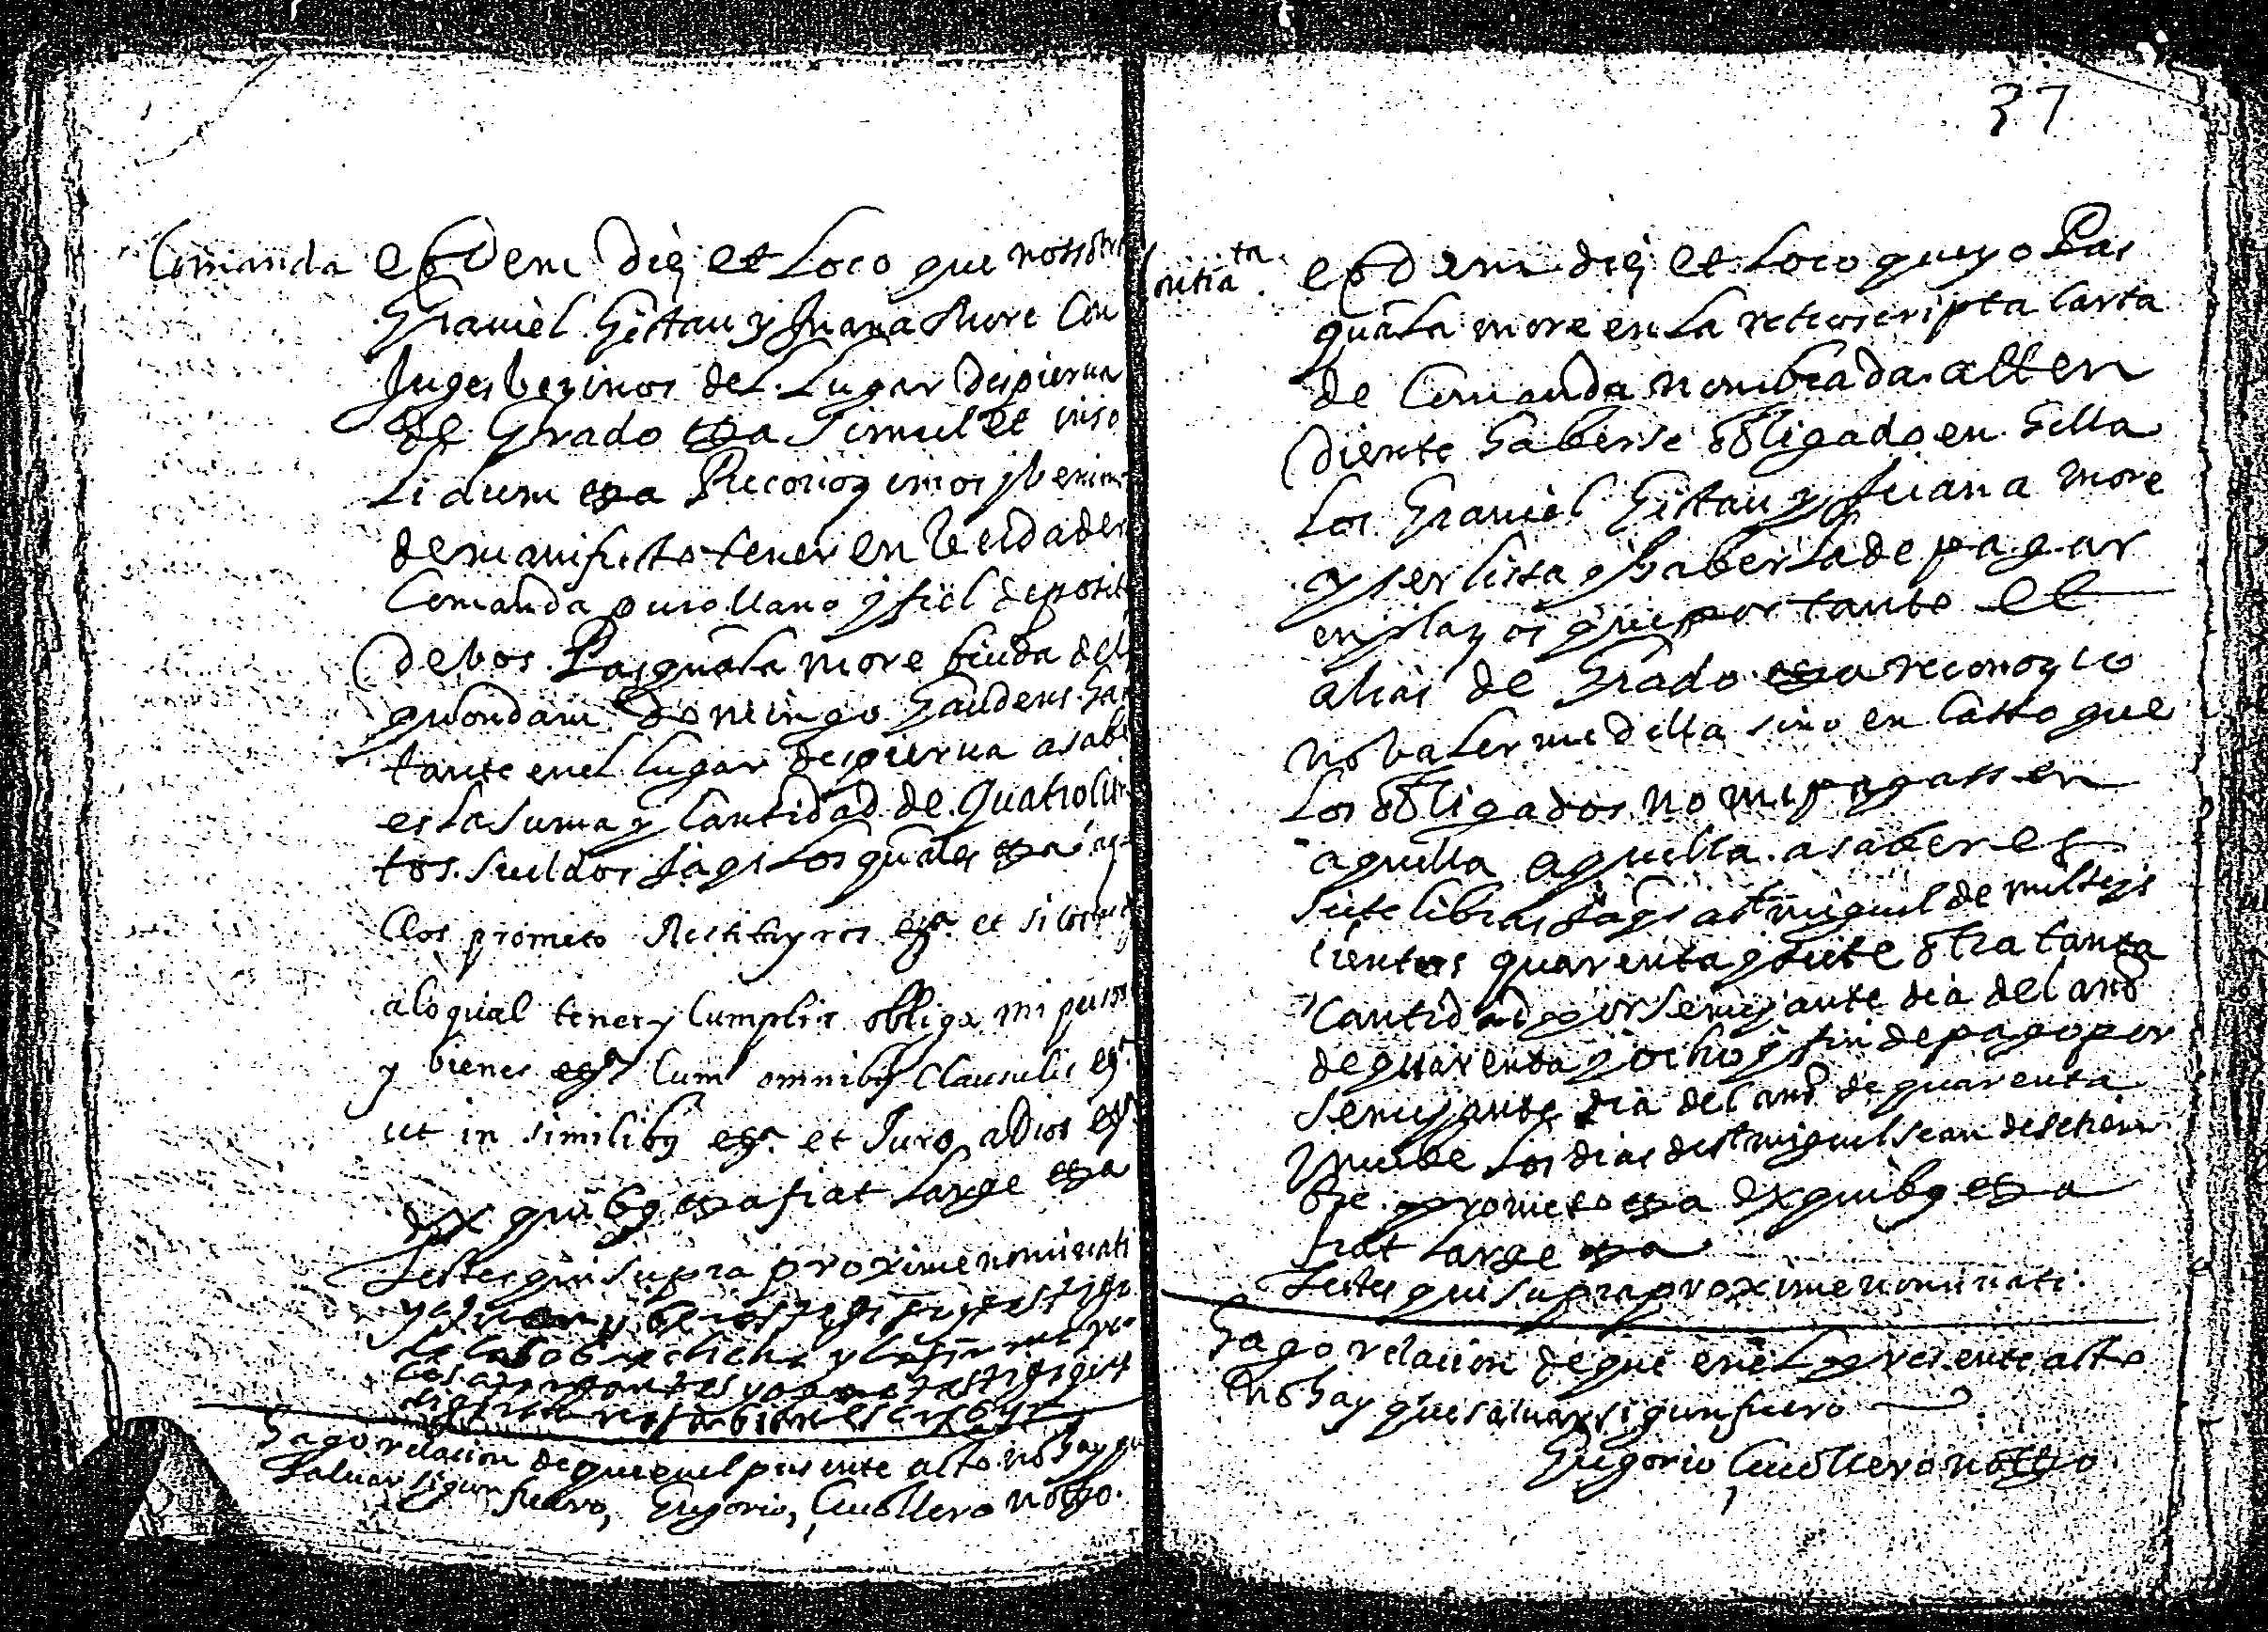 Comanda
eodem die et Loco que nosotros
Graviel Gistau y Juana More Con
Juges vezinos del Lugar despierva
de Grado etca Simul et inso
Lidum etca Reconozemos y venimos
de manifiesto tener en Verdadera
Comanda puro llano y fiel deposito
de vos Pasquala more biuda del
quondam Domingo Gaudens habi
tante en el lugar despierva asaber
es La Suma y Cantidad de quatrocien
tos sueldos Jaqs Los quales etca
prometo Restituyros etca et si
alo qual tener y Cumplir obligo mi persona
y bienes etca Cum omnibus Clausulis etca
ut in similibus etca et Juro a Dios etca
Ex quibus etca fiat Large etca
Testes qui supra proxime nominati
Hago relacion de que en el presente acto no hay que
Salvar sigun fuero, Gregorio, Cavallero notto.
37
Contra ta.
eodem die et Loco que yo Pas
quala more en la retroscripta Carta
de Comanda nombrada atten
diente haberse obligado en hella
Los Graviel Gistau y Juana More
y ser lista y haberla de pagar
en plazos que por tanto et
alias de Grado etca reconozco
no valerme della sino en Casso que
Los obligados no me pagassen
aquella aquella asaber es
siete libras Jaqs a st miguel de mil seys
cientos quarenta y siete otra tanta
Cantidad por semejante dia del año
de quarenta y ocho y fin de pago por
semejante dia del año de quarenta
y nueve Los dias de st miguel sean de setiem
bre prometo etca Ex quibus etca
fiat Large etca
Testes qui supra proxime nominati.
Hago relacion de que en el presente acto
no hay que salvar sigun fuero
Gregorio Cavallero notto